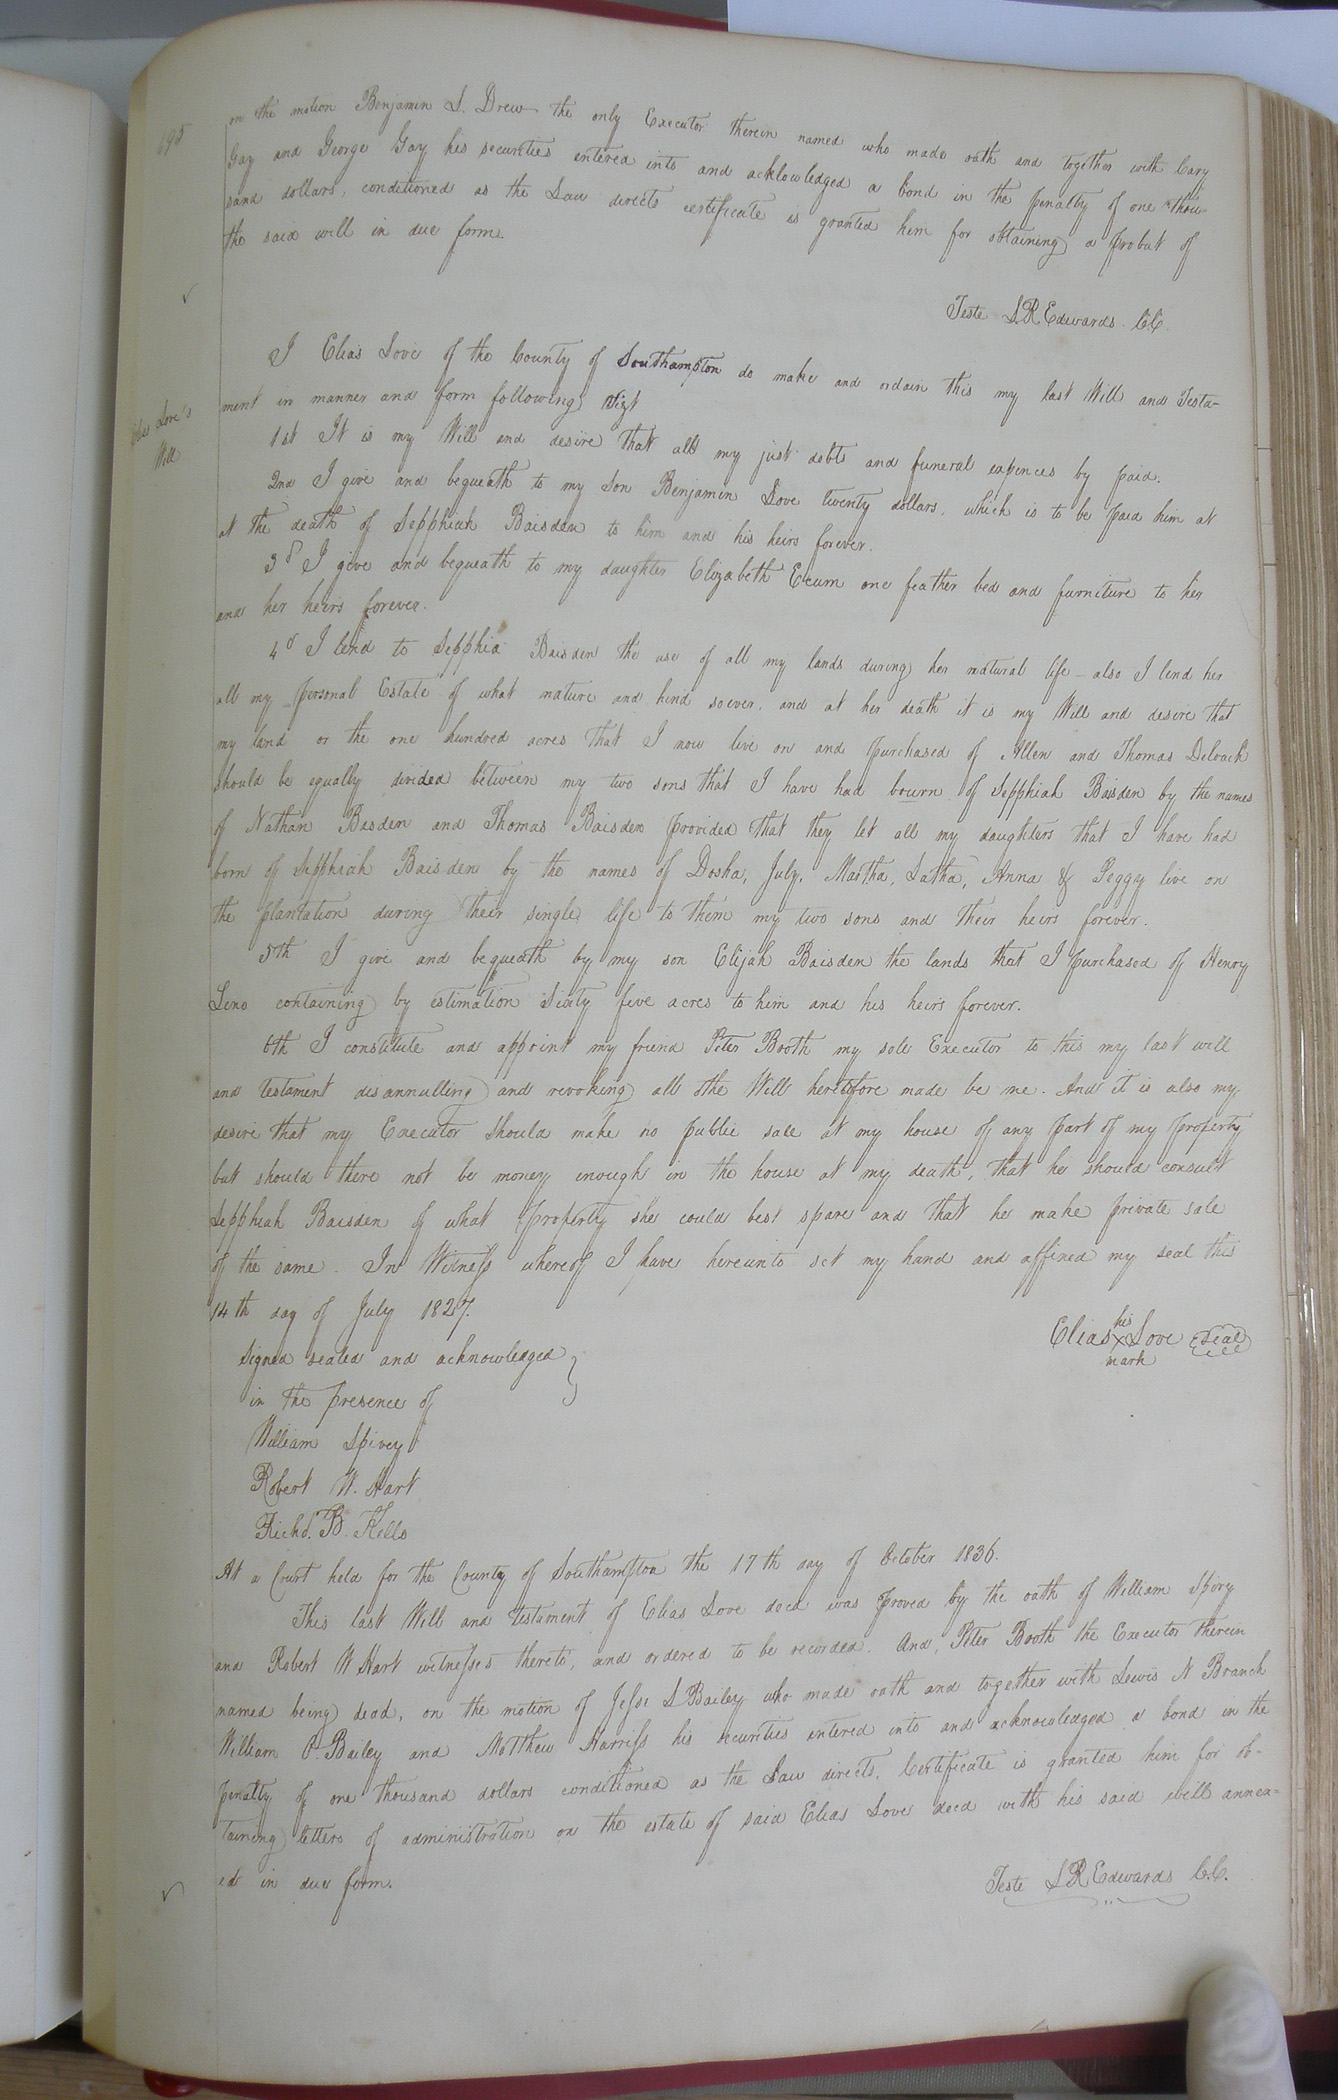 195
on the motion Benjamin S. Drew the only Executor therein named who made oath and together with Cary
Gay and George Gay his securities entered into and acklowledged a bond in the penalty of one thou-
sand dollars, conditioned as the Law directs certificate is granted him for obtaining a probat of
the said will in due form.
Teste L R Edwards. C.C.
I Elias Love of the County of Southampton do make and ordain this my last Will and Testa-
ment in manner and form following Vizt
Elias Love's
Will
1st It is my Will and desire that all my just debts and funeral expences by paid.
2nd I give and bequeath to my Son Benjamin Love twenty dollars, which is to be paid him at
at the death of Sepphiah Baisden to him and his heirs forever.
3d I give and bequeath to my daughter Elizabeth Ecum one feather bed and furniture to her
and her heirs forever.
4d I lend to Sepphia Baisden the use of all my lands during her natural life - also I lend her
all my personal Estate of what nature and kind soever, and at her death it is my Will and desire that
my land or the one hundred acres that I now live on and purchased of Allen and Thomas Deloach
should be equally divided between my two sons that I have had bourn of Sepphiah Baisden by the names
of Nathan Basden and Thomas Baisden provided that they let all my daughters that I have had
born of Sepphiah Baisden by the names of Dosha, July, Martha, Latha, Anna & Peggy live on
the plantation during their single life to them my two sons and their heirs forever.
5th I give and bequeath by my son Elijah Baisden the lands that I purchased of Henry
Lino containing by estimation Sixty five acres to him and his heirs forever.
6th I constitute and appoint my friend Peter Booth my sole Executor to this my last will
and testament disannulling and revoking all othe Will heretofore made be me. And it is also my
desire that my Executor Should make no public sale at my house of any part of my property
but should there not be money enough in the house at my death, that he should consult
Sepphiah Baisden of what property she could best spare and that he make private sale
of the same. In Witness whereof I have hereunto set my hand and affixed my seal this
14th day of July 1827.
his
Elias X Love Seal
mark
Signed sealed and acknowledged
in the presence of
William Spivey
Robert W. Hart
Richd. B. Kello
At a Court held for the County of Southampton the 17th day of October 1836.
This last Will and testament of Elias Love decd was proved by the oath of William Spivy
and Robert W Hart witnesses thereto, and ordered to be recorded. And, Peter Booth the Executor therein
named being dead, on the motion of Jesse L Bailey who made oath and together with Lewis N Branch
William P. Bailey and Matthew Harriss his securities entered into and acknowledged a bond in the
penalty of one thousand dollars conditioned as the Law directs. Certificate is granted him for ob-
taining letters of administration on the estate of said Elias Love decd with his said will annex-
ed in due form.
Teste L R Edwards C.C.